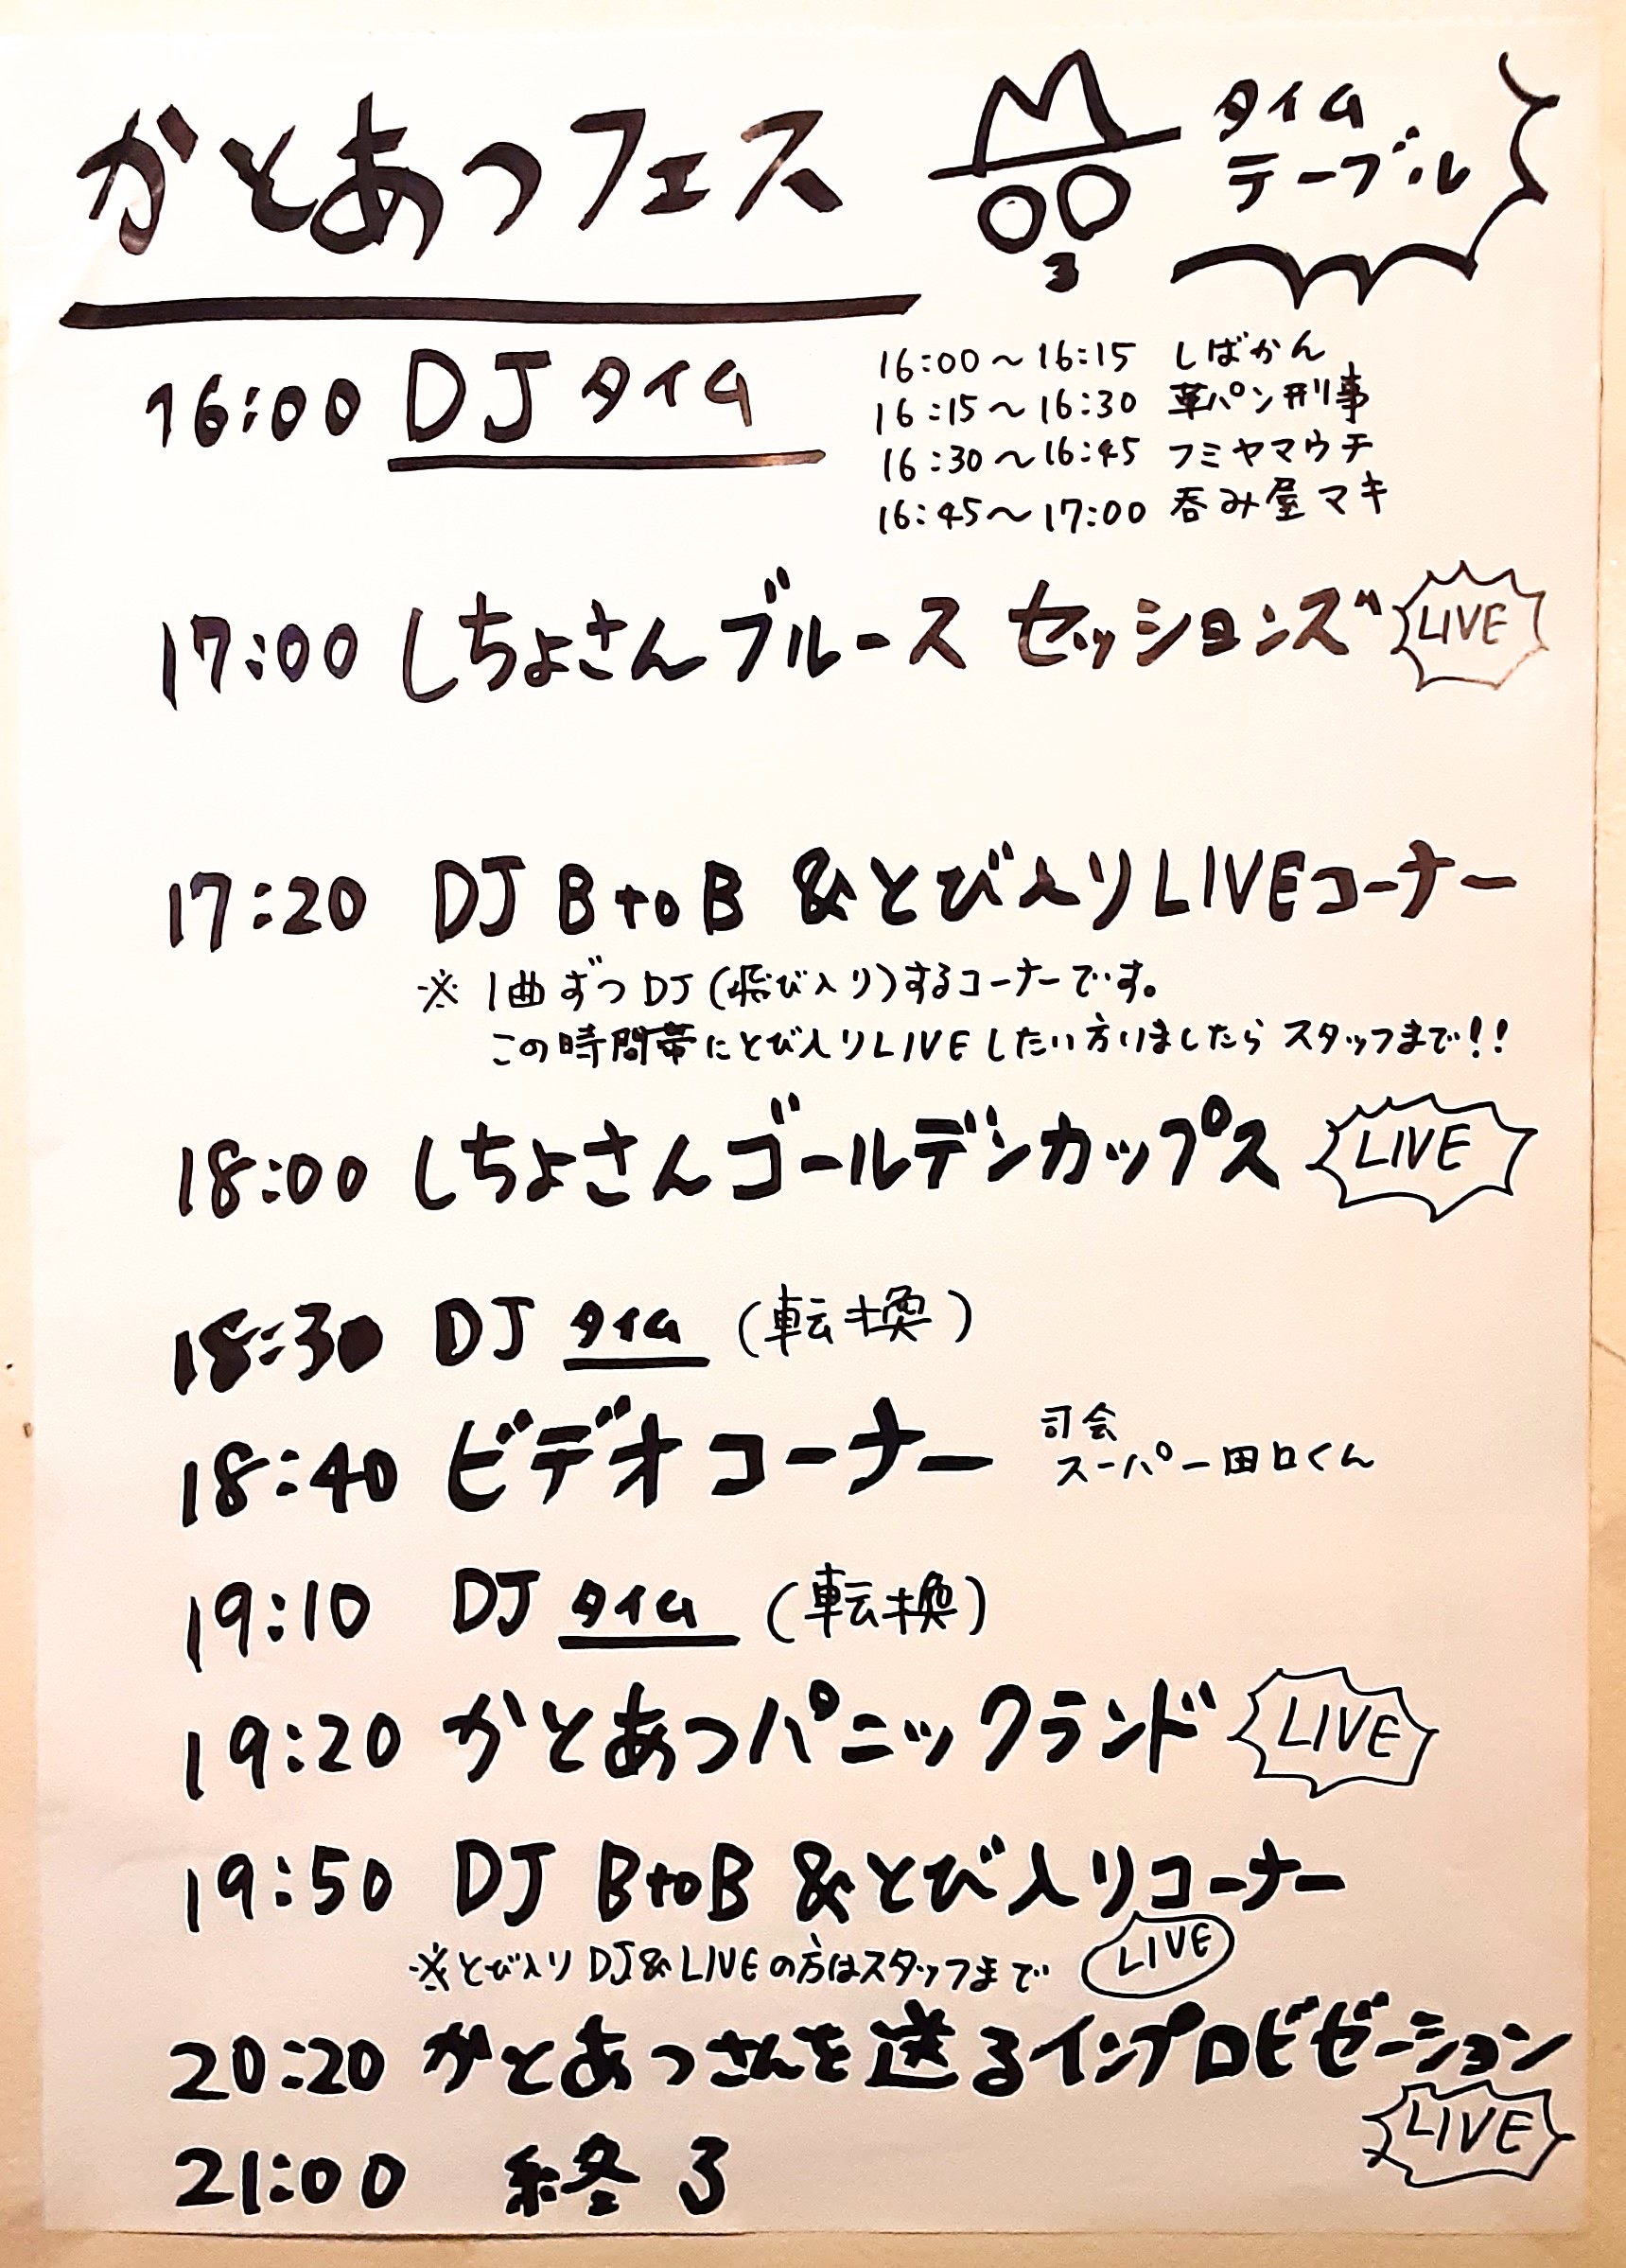 かとあつフェス
タイム
テーブル
16:00 DJタイム
16:00～16:15 しばかん
16:15～16:30 革パン刑事
16:30～16:45 フミヤマウチ
16:45～17:00 呑み屋マキ
17:00 しちょさんブルース セッションズ LIVE
17:20 DJ BtoB &とび入りLIVEコーナー
※ 1曲ずつDJ(飛び入り)するコーナーです。
この時間帯にとび入りLIVEしたい方いましたら スタッフまで!!
18:00 しちょさんゴールデンカップス LIVE
18:30 DJ タイム (転換)
18:40 ビデオコーナー 司会
スーパー田口くん
19:10 DJ タイム (転換)
19:20 かとあつパニックランド LIVE
19:50 DJ BtoB &とび入りコーナー
※とび入りDJ&LIVEの方はスタッフまで LIVE
20:20 かとあつさんを送るインプロビゼーション
LIVE
21:00 終了